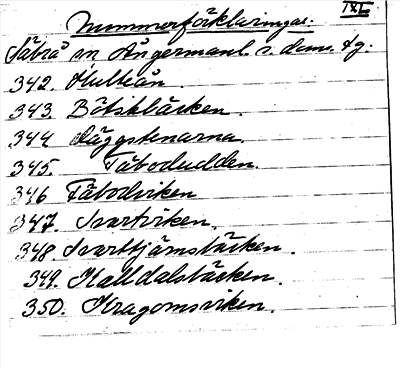 IXL
Nummerförklaringar.
Säbrå sn Ångermanl. s. dom. tg:
342. Hulteån
343. Båtsktäcken.
344. Läggstenarna.
345. Fäbodudden.
346 Fäbodviken
347. Svartviken.
348. Svarttjärnstäcken.
349. Kalldalstäcken.
350. Kragomsviken.